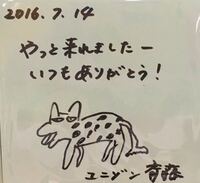 2016.7.14
やっと来れましたー
いつもありがとう!
ユニゾン 斎藤